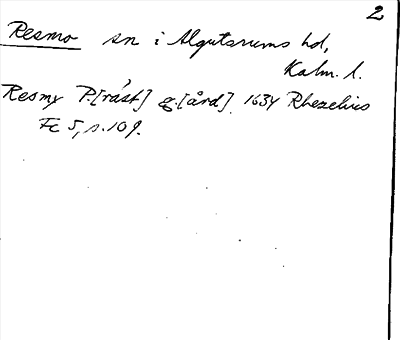 2
Resmo sn i Algutsrums hd,
Kalm. l.
Resmy P.[räst] g.[ård]. 1634 Rhezelius
Fc 5, s. 109.